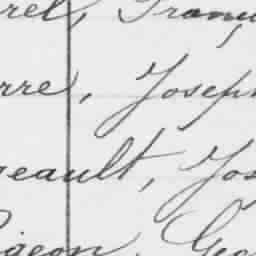 rel, Franç
rre, Joseph
geault, Jos
Pigeon, Geo